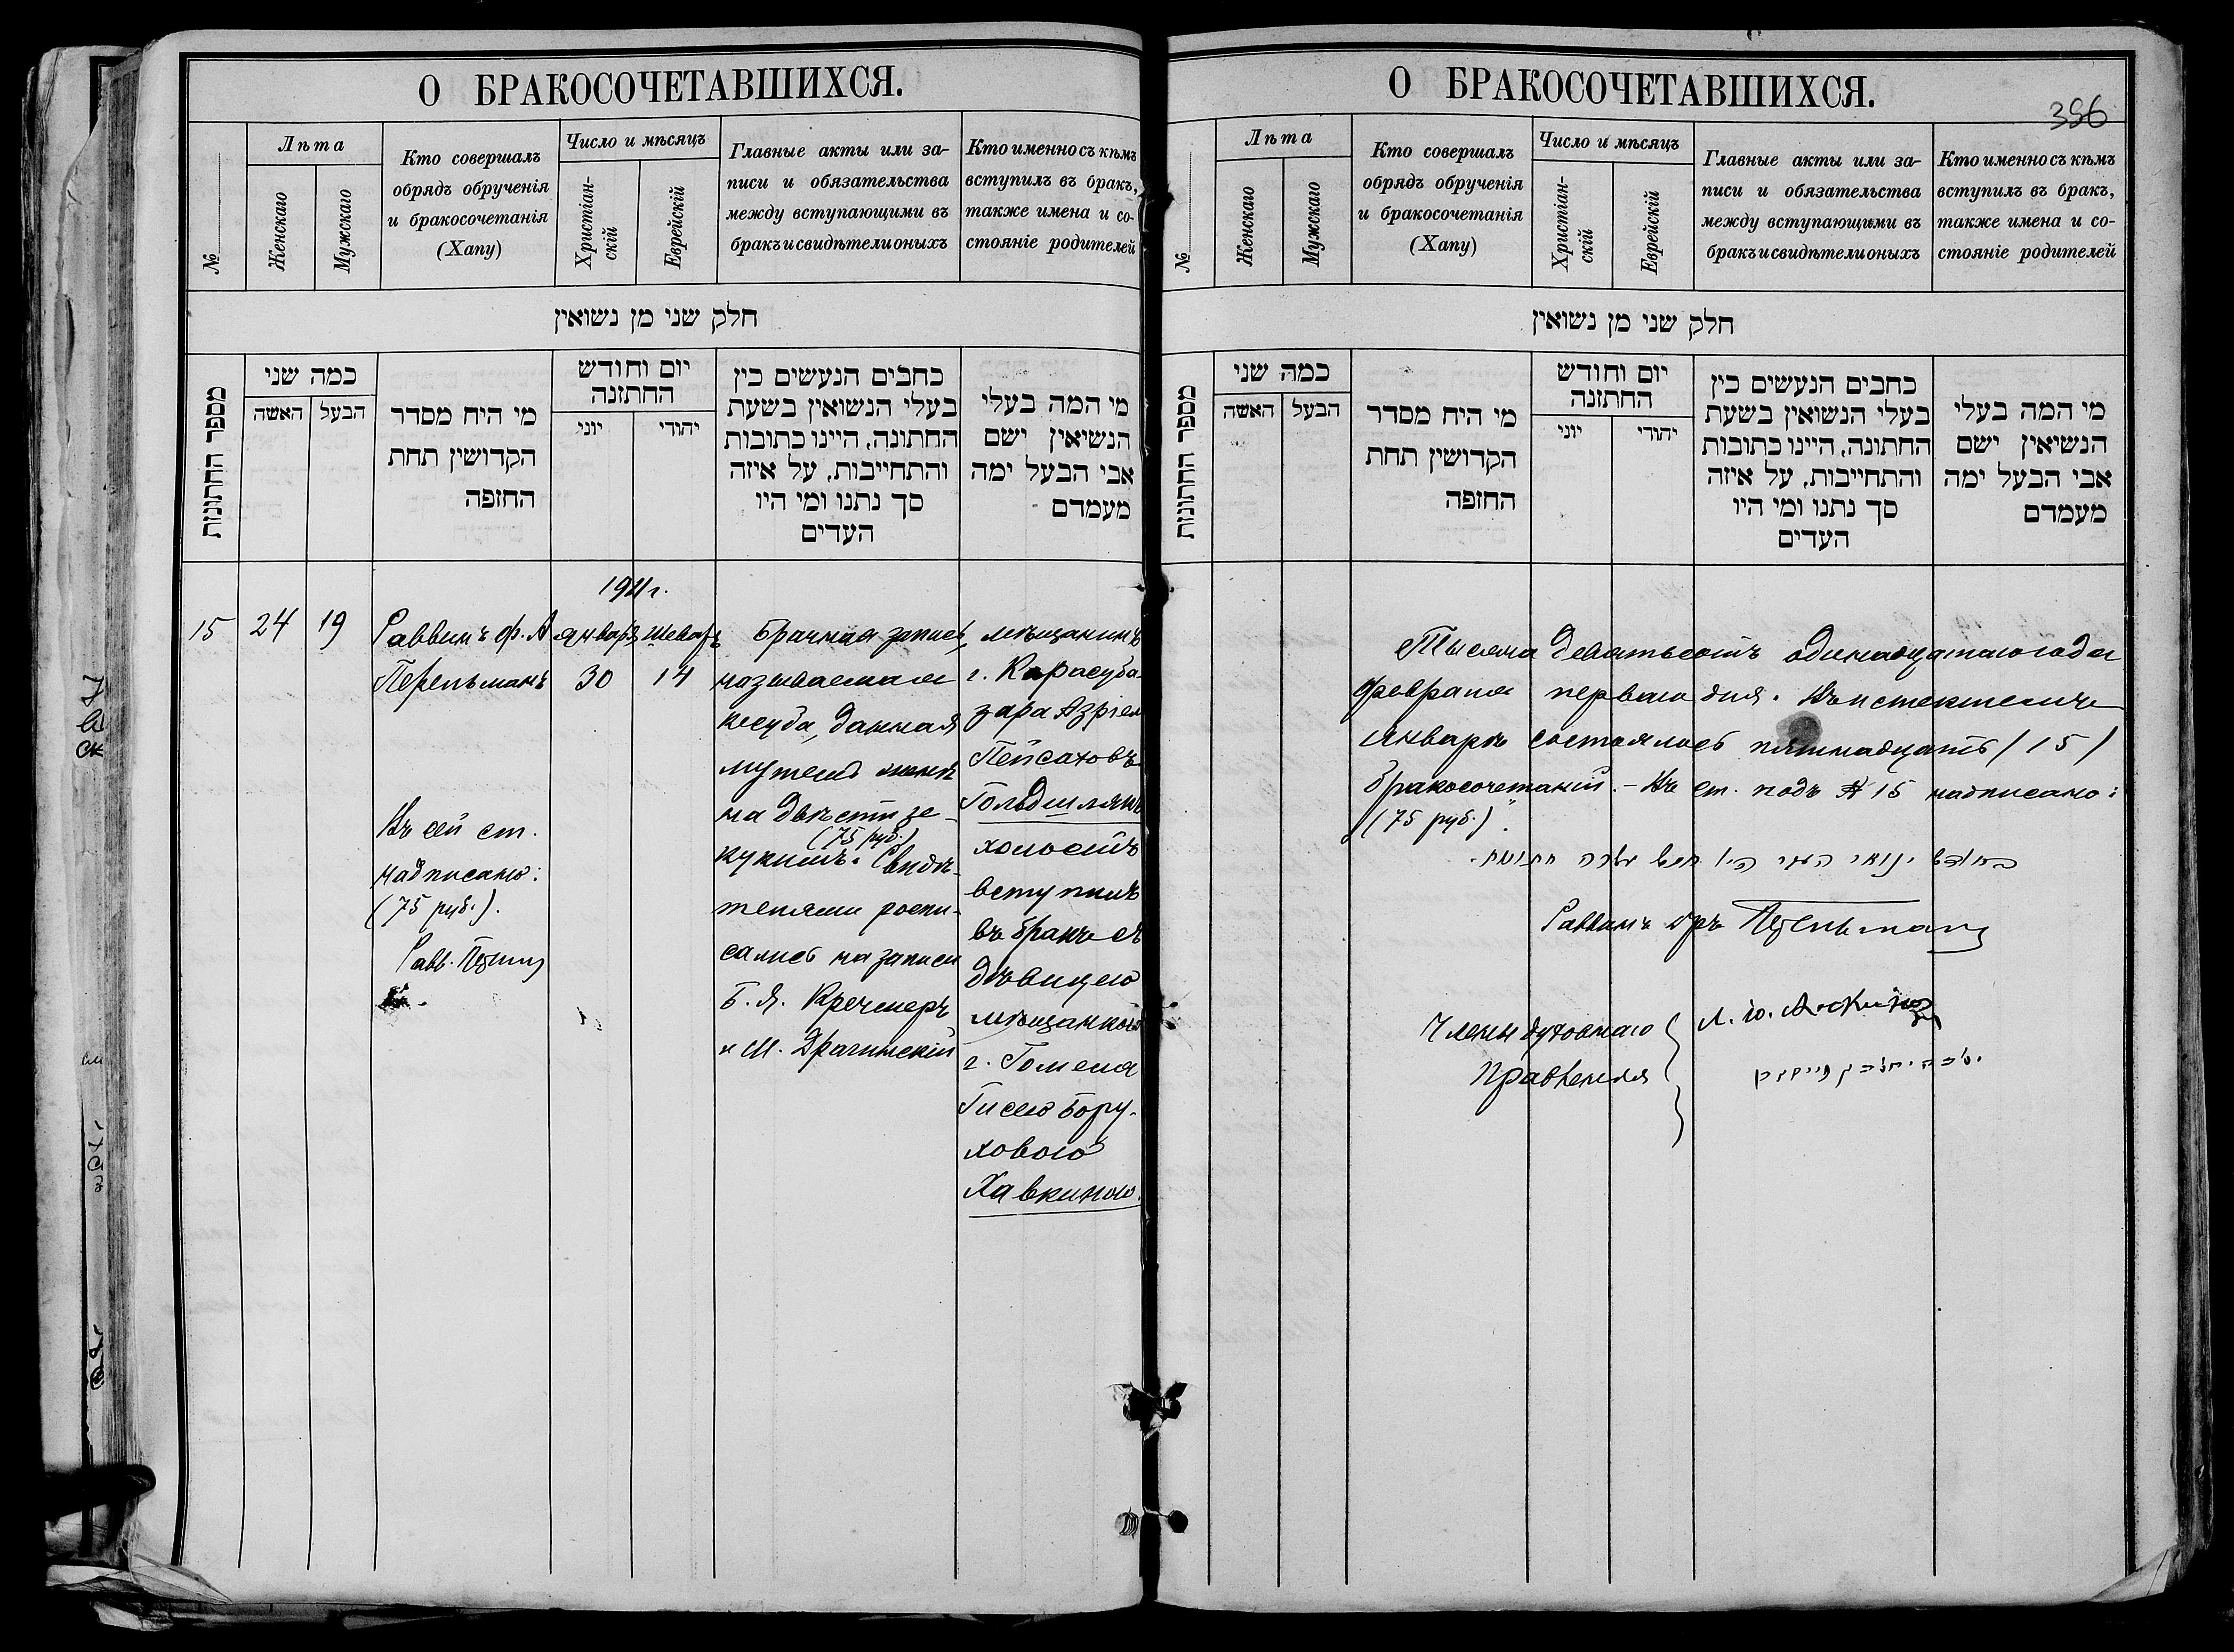 О БРАКОСОЧЕТАВШИХСЯ.
№
Лѣта
Женскаго
Мужскаго
Кто совершалъ
обрядъ обрученія
и бракосочетанія
(Хапу)
Число и мѣсяцъ
Христіан-
скій
Еврейскій
Главные акты или за-
писи и обязательства
между вступающими въ
бракъ и свидѣтели оныхъ
Кто именно съ кѣмъ
вступилъ въ бракъ,
также имена и со-
стояніе родителей
חלק שני מן נשואין
מספר החתונות
כמה שני
האשה
הבעל
מי היח מסדר
הקדושין תחת
החופה
יום וחודש
החתונה
יוני
יהודי
כחבים הנעשים כין
בעלי הנשואין בשעת
החתונה, היינו כתובות
והתחייבות, על איזה
סך נתנו ומי היו
העדים
מי המה בעלי
הנשיאין ישם
אבי הבעל ימה
מעמדם
1911 г.
15
24
19
Раввинъ ф. А
Перельманъ
январь
30
Шеватъ
14
Брачная запись,
называемая
кесуба, данная
мужемъ женѣ
на двѣсти зе-
(75 руб.)
кукимъ. Свидѣ-
телями роспи-
сались на записи
Б. Я. Кречмеръ
и М. Драгинскій
мѣщанинъ
г. Карасуба-
зара Азріел
Пейсаховъ
Гольдшлякъ
холостъ
вступилъ
въ бракъ съ
дѣвицею
мѣщанкою
г. Гомеля
Гисею Бору-
ховою
Хавкиною.
Въ сей ст.
надписано:
(75 руб.).
Равв.
О БРАКОСОЧЕТАВШИХСЯ.
396
№
Лѣта
Женскаго
Мужскаго
Кто совершалъ
обрядъ обрученія
и бракосочетанія
(Хапу)
Число и мѣсяцъ
Христіан-
скій
Еврейскій
Главные акты или за-
писи и обязательства
между вступающими въ
бракъ и свидѣтели оныхъ
Кто именно съ кѣмъ
вступилъ въ бракъ,
также имена и со-
стояніе родителей
חלק שני מן נשואין
מספר החתונות
כמה שני
האשה
הבעל
מי היח מסדר
הקדושין תחת
החופה
יום וחודש
החתונה
יוני
יהודי
כחבים הנעשים כין
בעלי הנשואין בשעת
החתונה, היינו כתובות
והתחייבות, על איזה
סך נתנו ומי היו
העדים
מי המה בעלי
הנשיאין ישם
אבי הבעל ימה
מעמדם
Тысяча девятьсотъ одинадцатаго года
февраля перваго дня. Въ истекшемъ
январѣ состоялось пятнадцать (15)
бракосочетаній. – Въ ст. подъ № 15 надписано:
"(75 руб.)".
בחודש ינואר היו חמש עשרה חתונות.
Раввинъ ф. А Перельманъ
Члены духовнаго
Правленія